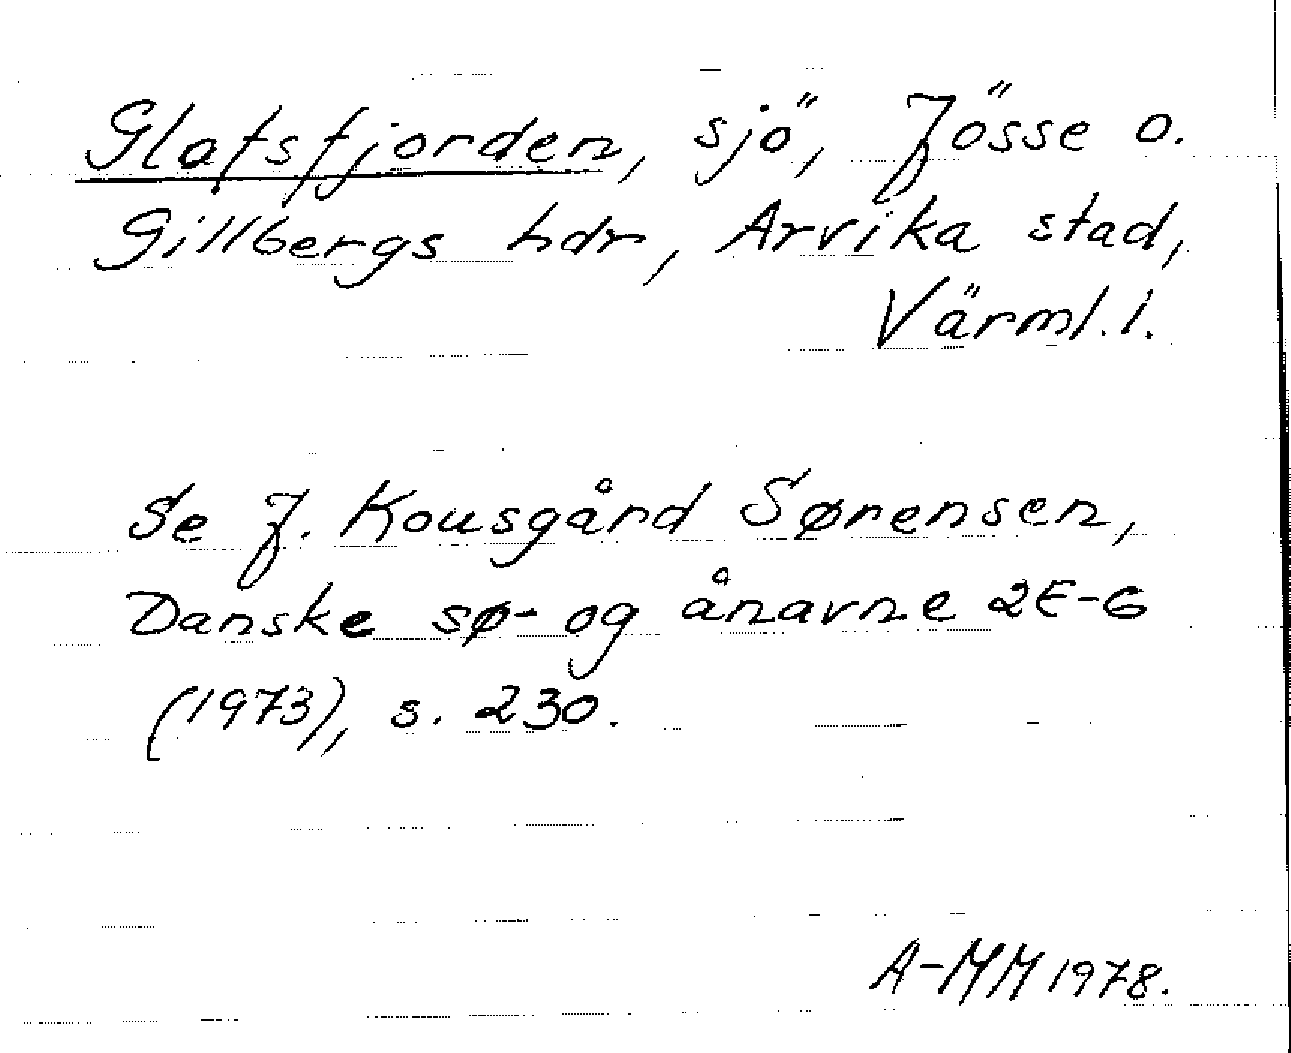 Glafsfjorden, sjö, Jösse o.
Gillbergs hdr, Arvika stad,
Värml. l.
Se J. Kousgård Sørensen,
Danske sø- og ånavne 2E-G
(1973), s. 230.
A-MM 1978.